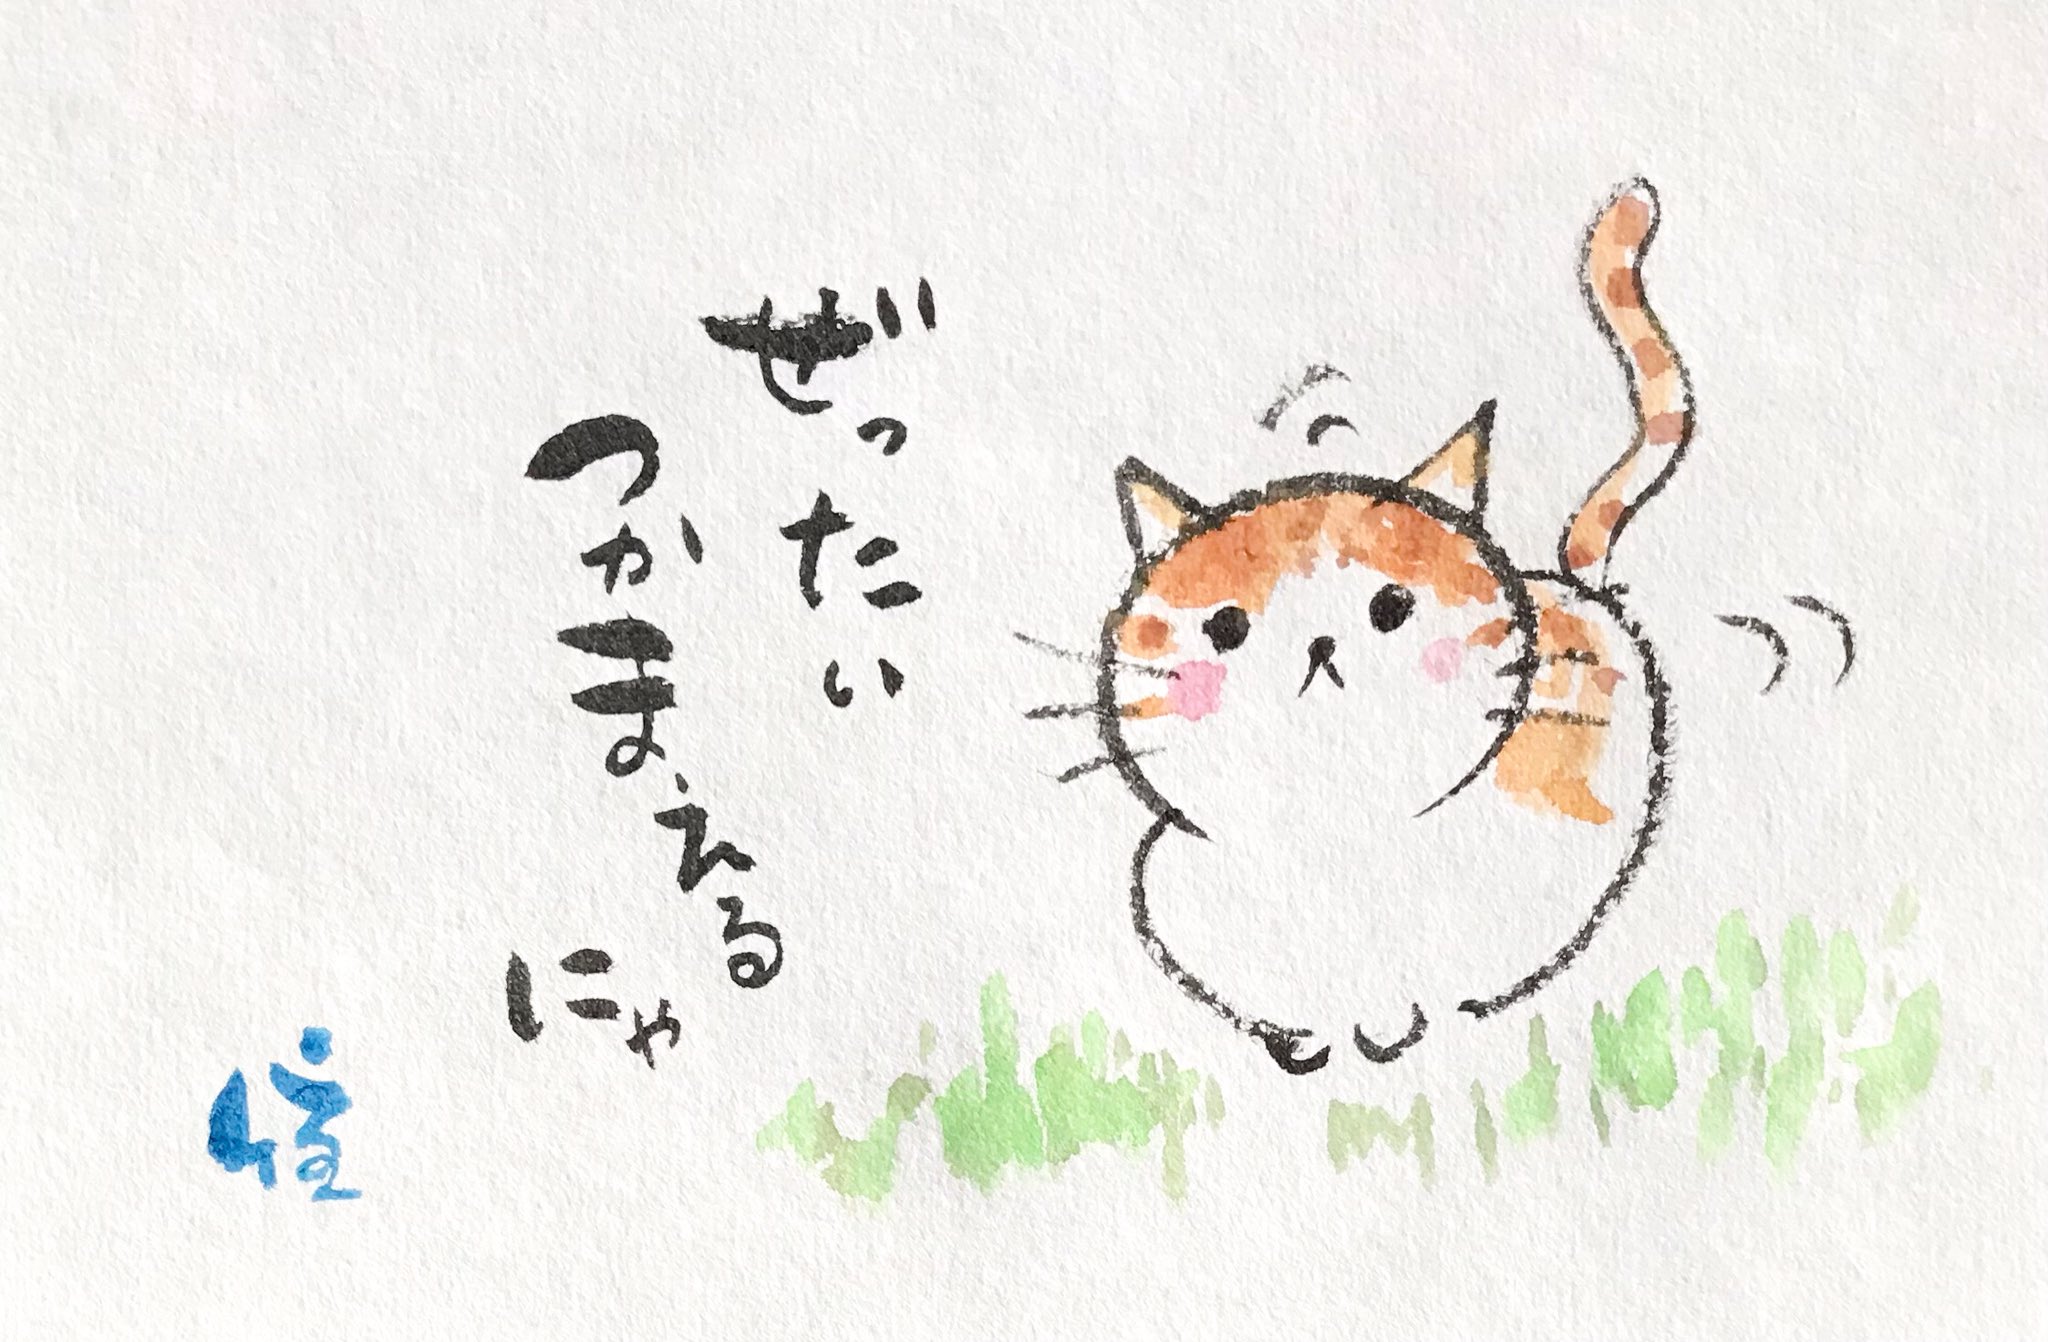 ぜったい
つかまえる
にゃ